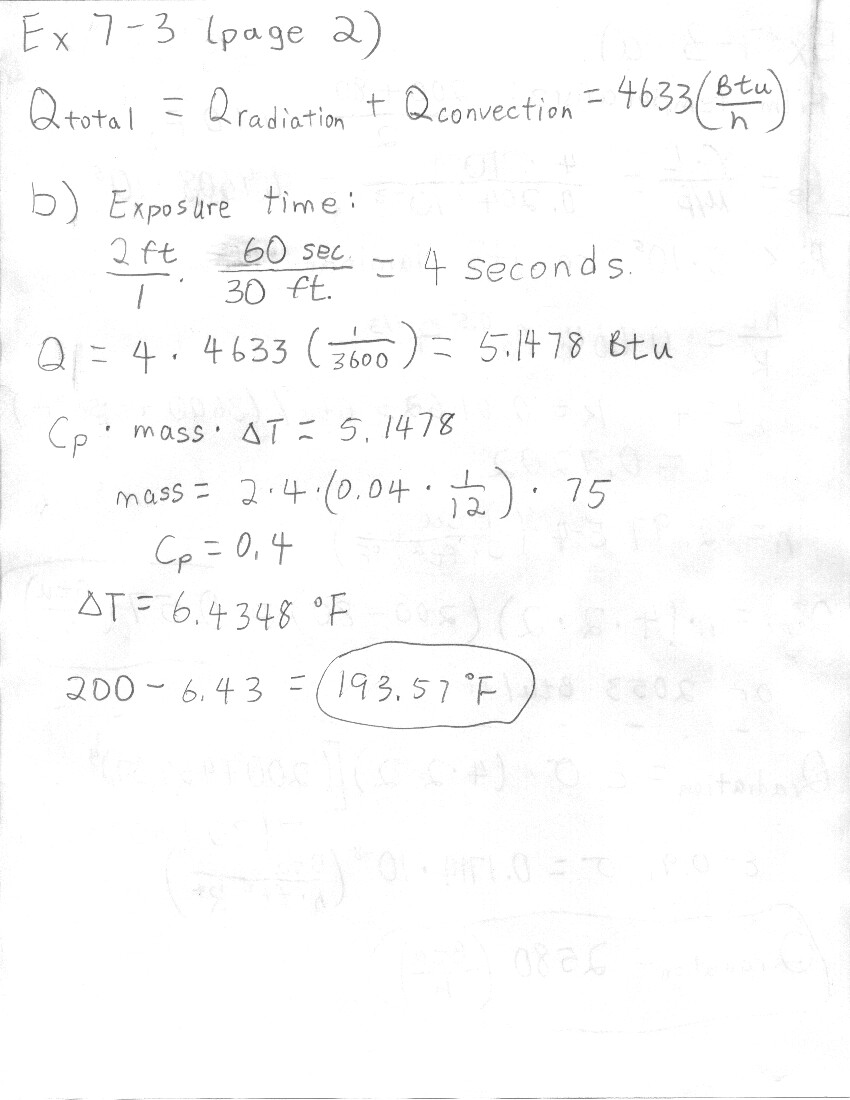 Ex 7-3 (page 2)
Qtotal = Qradiation + Qconvection = 4633 (Btu/h)
b) Exposure time:
2 ft/1 · 60 sec./30 ft. = 4 seconds.
Q = 4 · 4633 (1/3600) = 5.1478 Btu
Cp · mass · ΔT = 5.1478
mass = 2·4·(0.04 · 1/12) · 75
Cp = 0.4
ΔT = 6.4348 °F
200 - 6.43 = 193.57 °F